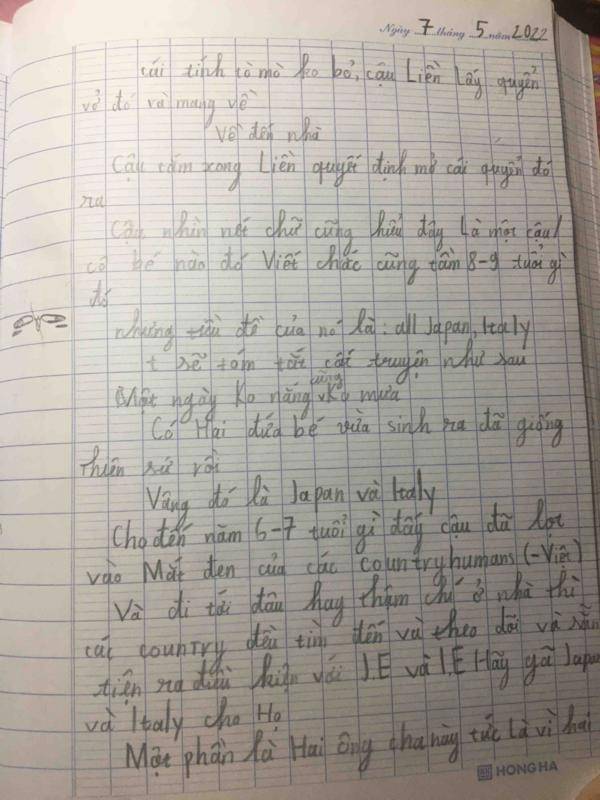 Ngày 7 tháng 5 năm 2022
cái tính tò mò ko bỏ, cậu Liền lấy quyển
vở đó và mang về
Về đến nhà
Cậu tắm xong Liền quyết định mở cái quyển đó
ra
Cậu nhìn nét chữ cũng hiểu đây Là một cậu/
cô bé nào đó Viết chắc cũng tầm 8-9 tuổi gì
đó
nhưng tiêu đề của nó là: all Japan, Italy
t sẽ tóm tắt cốt truyện như sau
Một ngày Ko nắng cũng Ko mưa
Có Hai đứa bé vừa sinh ra đã giống
thiên sứ rồi
Vâng đó là Japan và Italy
Cho đến năm 6-7 tuổi gì đấy cậu đã lọt
vào Mắt đen của các countryhumans (-Việt)
Và đi tới đâu hay thậm chí ở nhà thì
các country đều tìm đến và theo dõi và sẵn
tiện ra điều kiện với J.E và I.E Hãy gã Japan
và Italy cho Họ
Một phần là Hai ông cha này tức là vì hai
HONG HA